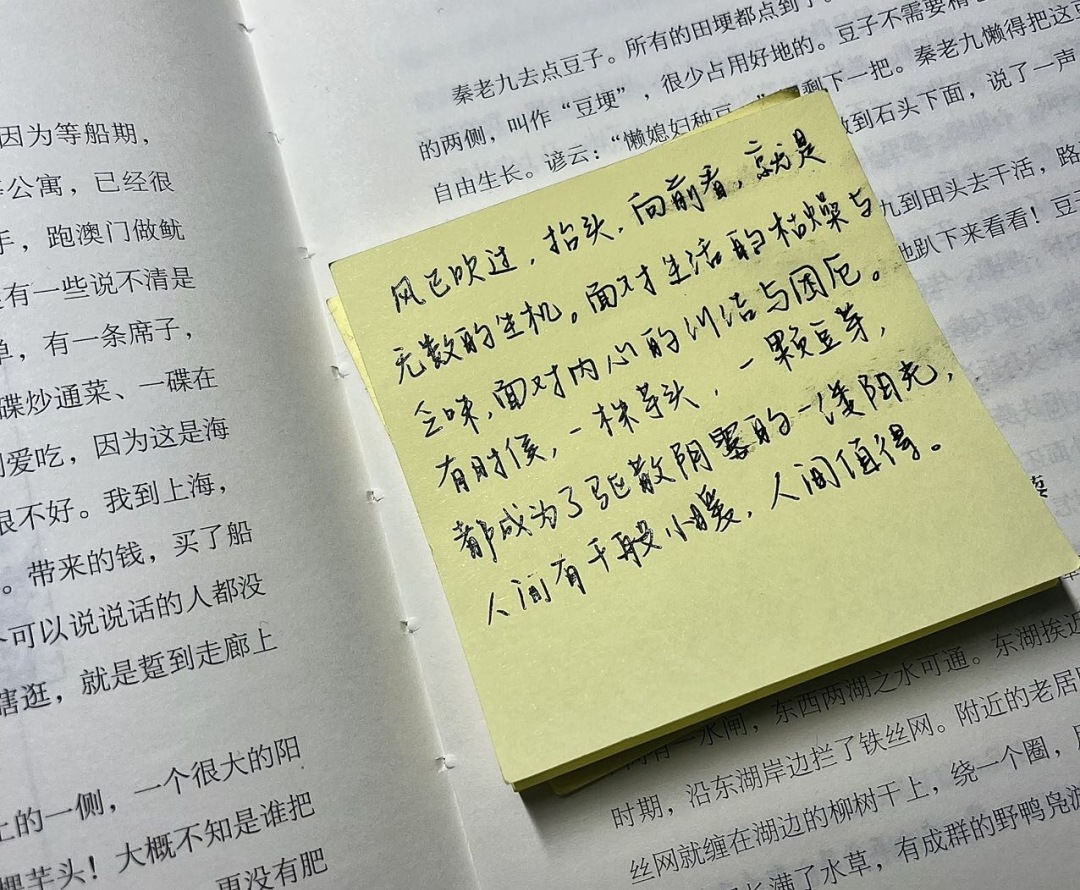 因为等船期，
公寓，已经很
手，跑澳门做鱿
有一些说不清是
单，有一条席子，
碟炒通菜、一碟在
爱吃，因为这是海
很不好。我到上海，
。带来的钱，买了船
个可以说说话的人都没
瞎逛，就是踅到走廊上
上的一侧，一个很大的阳
棵芋头！大概不知是谁把
更没有肥
秦老九去点豆子。所有的田埂都点到了。
的两侧，叫作“豆埂”，很少占用好地的。豆子不需要精
自由生长。谚云：“懒媳妇种豆 剩下一把。秦老九懒得把这豆
到石头下面，说了一声
九到田头去干活，路
他趴下来看看！豆子
风已吹过，抬头，向前看，就是
无数的生机。面对生活的枯燥与
乏味，面对内心的纠结与困厄。
有时候，一株芋头，一颗豆芽，
都成为了驱散阴霾的一缕阳光，
人间有千般小暖，人间值得。
水闸，东西两湖之水可通。东湖挨近
时期，沿东湖岸边拦了铁丝网。附近的老居
丝网就缠在湖边的柳树干上，绕一个圈，
长满了水草，有成群的野鸭凫游